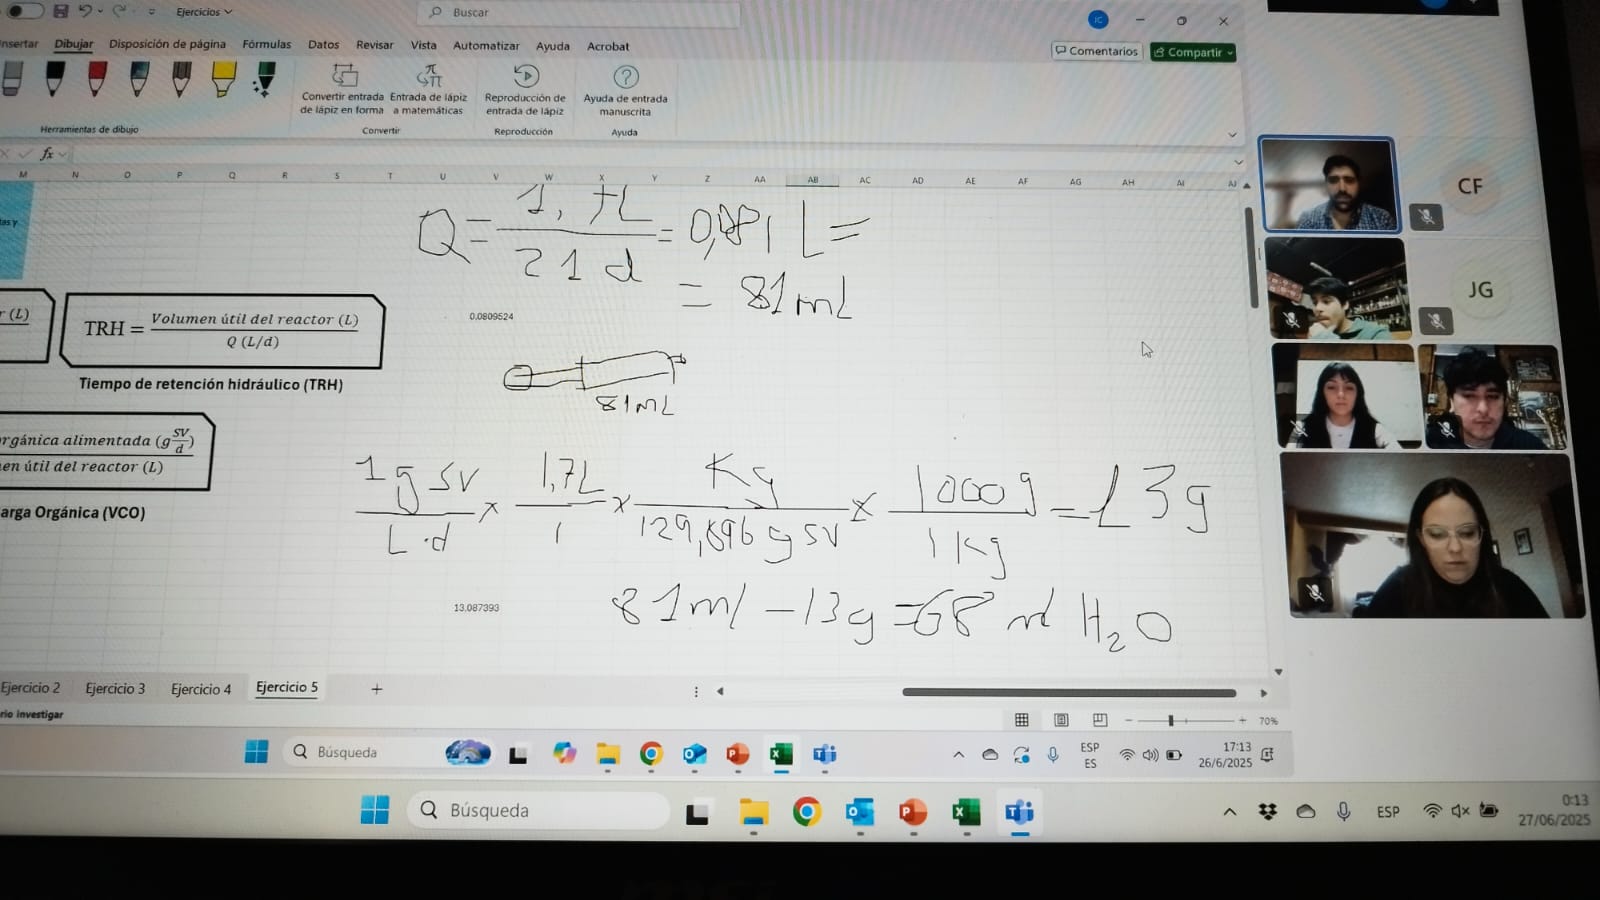 Ejercicios
Buscar
IC
nsertar Dibujar Disposición de página Fórmulas Datos Revisar Vista Automatizar Ayuda Acrobat
Comentarios Compartir
Convertir entrada de lápiz en forma
Entrada de lápiz a matemáticas
Reproducción de entrada de lápiz
Ayuda de entrada manuscrita
Herramientas de dibujo Convertir Reproducción Ayuda
fx
M N O P Q R S T U V W X Y Z AA AB AC AD AE AF AG AH AI AJ
Q = 1,7L / 21 d = 0,081 L =
= 81 mL
0,0809524
r (L)
TRH = Volumen útil del reactor (L) / Q (L/d)
Tiempo de retención hidráulico (TRH)
81 mL
rgánica alimentada (g SV/d)
en útil del reactor (L)
arga Orgánica (VCO)
1 g SV / L·d x 1,7L / 1 x Kg / 129,896 g SV x 1000 g / 1 Kg = 13 g
13,087393
81 ml - 13 g = 68 ml H2O
CF
JG
Ejercicio 2 Ejercicio 3 Ejercicio 4 Ejercicio 5 +
rio investigar
70%
Búsqueda
ESP
ES
17:13
26/6/2025
Búsqueda
ESP
0:13
27/06/2025